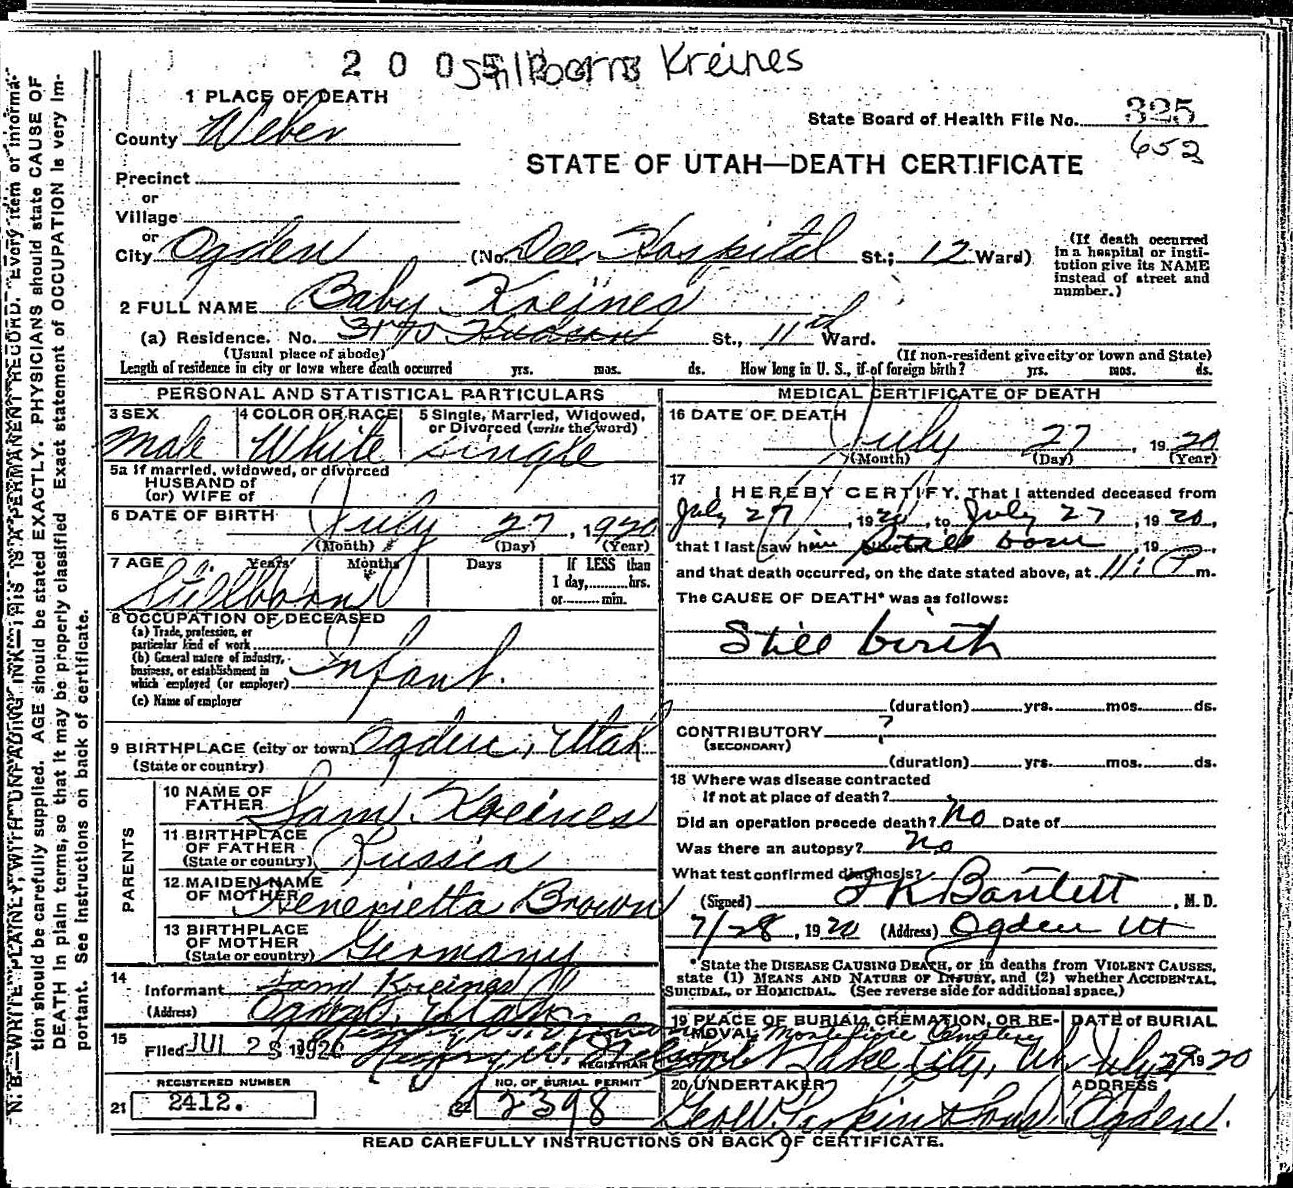 2005 Stillborn Kreines
1 PLACE OF DEATH
County Weber
State Board of Health File No. 325
652
STATE OF UTAH—DEATH CERTIFICATE
Precinct
or
Village
or
City Ogden (No. Dee Hospital St.; 12 Ward)
(If death occurred in a hospital or institution give its NAME instead of street and number.)
2 FULL NAME Baby Kreines
(a) Residence. No. 3170 St., 11 Ward.
(Usual place of abode) (If non-resident give city or town and State)
Length of residence in city or town where death occurred yrs. mos. ds. How long in U. S., if of foreign birth? yrs. mos. ds.
PERSONAL AND STATISTICAL PARTICULARS
3 SEX
Male
4 COLOR OR RACE
White
5 Single, Married, Widowed, or Divorced (write the word)
Single
5a If married, widowed, or divorced
HUSBAND of
(or) WIFE of
6 DATE OF BIRTH
July 27, 1920
(Month) (Day) (Year)
7 AGE Years Months Days If LESS than
1 day, hrs.
or min.
Stillborn
8 OCCUPATION OF DECEASED
(a) Trade, profession, or
particular kind of work
(b) General nature of industry,
business, or establishment in
which employed (or employer) Infant.
(c) Name of employer
9 BIRTHPLACE (city or town) Ogden, Utah
(State or country)
PARENTS
10 NAME OF
FATHER Sam Kreines
11 BIRTHPLACE
OF FATHER
(State or country) Russia
12 MAIDEN NAME
OF MOTHER Henerietta Brown
13 BIRTHPLACE
OF MOTHER
(State or country) Germany
14
Informant Sam Kreines
(Address) Ogden, Utah
15
Filed JUL 28 1920
REGISTRAR
REGISTERED NUMBER
21 2412.
NO. OF BURIAL PERMIT
22 2398
MEDICAL CERTIFICATE OF DEATH
16 DATE OF DEATH
July 27, 1920
(Month) (Day) (Year)
17
I HEREBY CERTIFY, That I attended deceased from
July 27, 1920, to July 27, 1920,
that I last saw him Still born, 19
and that death occurred, on the date stated above, at 11: P m.
The CAUSE OF DEATH* was as follows:
Still birth
(duration) yrs. mos. ds.
CONTRIBUTORY ?
(SECONDARY)
(duration) yrs. mos. ds.
18 Where was disease contracted
If not at place of death?
Did an operation precede death? No Date of
Was there an autopsy? no
What test confirmed diagnosis?
(Signed) Bartlett, M. D.
7/28, 1920 (Address) Ogden Ut
*State the DISEASE CAUSING DEATH, or in deaths from VIOLENT CAUSES,
state (1) MEANS AND NATURE OF INJURY, and (2) whether ACCIDENTAL,
SUICIDAL, or HOMICIDAL. (See reverse side for additional space.)
19 PLACE OF BURIAL, CREMATION, OR RE-
MOVAL Montefiore Cemetery
Lake City, Ut
DATE of BURIAL
July 29 1920
20 UNDERTAKER
Geo W. Larkin & Sons
ADDRESS
Ogden.
READ CAREFULLY INSTRUCTIONS ON BACK OF CERTIFICATE.
N. B.—WRITE PLAINLY, WITH UNFADING INK—THIS IS A PERMANENT RECORD. Every item of informa-
tion should be carefully supplied. AGE should be stated EXACTLY. PHYSICIANS should state CAUSE OF
DEATH in plain terms, so that it may be properly classified. Exact statement of OCCUPATION is very im-
portant. See instructions on back of certificate.